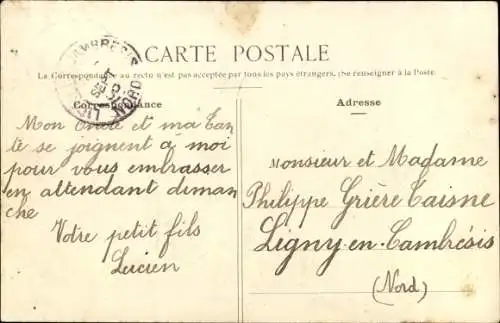 CARTE POSTALE
La Correspondance au recto n'est pas acceptée par tous les pays étrangers. (Se renseigner à la Poste.
Correspondance
Mon Oncle et ma Tan
te se joignent à moi
pour vous embrasser
en attendant diman
che
Votre petit fils
Lucien
Adresse
Monsieur et Madame
Philippe Grière Taisne
Ligny-en-Cambrésis
(Nord)